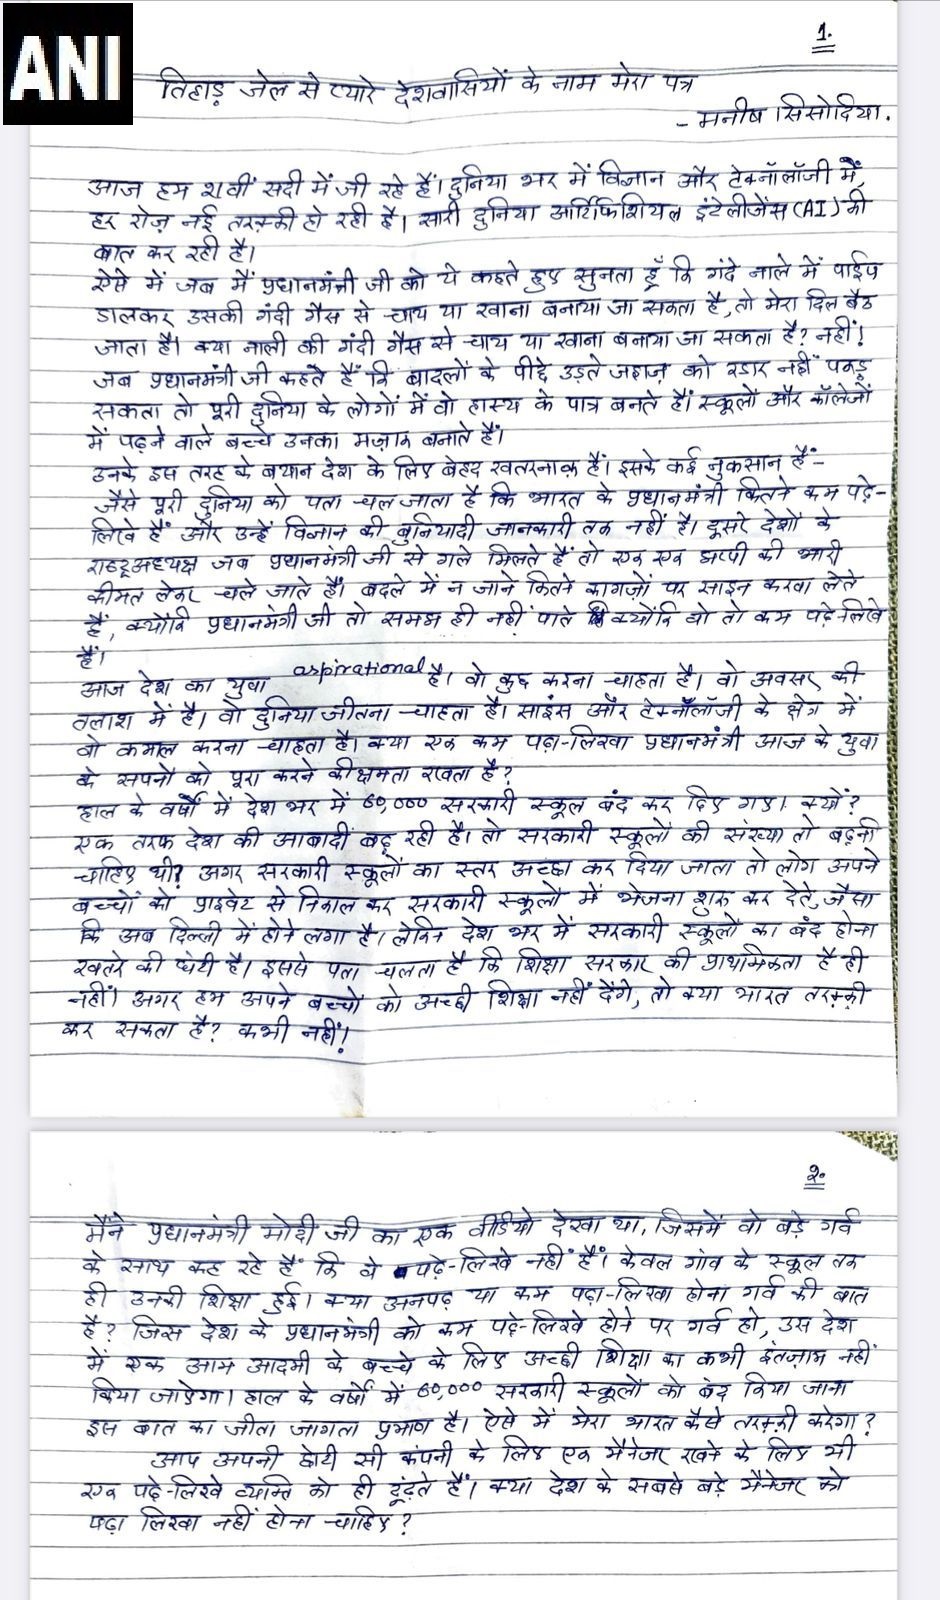 ANI
1.
तिहाड़ जेल से प्यारे देशवासियों के नाम मेरा पत्र
- मनीष सिसोदिया.
आज हम 21वीं सदी में जी रहे हैं। दुनिया भर में विज्ञान और टेक्नॉलॉजी में,
हर रोज़ नई तरक़्की हो रही है। सारी दुनिया आर्टिफिशियल इंटेलीजेंस (AI) की
बात कर रही है।
ऐसे में जब मैं प्रधानमंत्री जी को ये कहते हुए सुनता हूँ कि गंदे नाले में पाईप
डालकर उसकी गंदी गैस से चाय या खाना बनाया जा सकता है, तो मेरा दिल बैठ
जाता है। क्या नाली की गंदी गैस से चाय या खाना बनाया जा सकता है? नहीं!
जब प्रधानमंत्री जी कहते हैं कि बादलों के पीछे उड़ते जहाज़ को रडार नहीं पकड़
सकता तो पूरी दुनिया के लोगों में वो हास्य के पात्र बनते हैं। स्कूलों और कॉलेजों
में पढ़ने वाले बच्चे उनका मज़ाक बनाते हैं।
उनके इस तरह के बयान देश के लिए बेहद खतरनाक़ हैं। इसके कई नुकसान हैं -
जैसे पूरी दुनिया को पता चल जाता है कि भारत के प्रधानमंत्री कितने कम पढ़े-
लिखे हैं और उन्हें विज्ञान की बुनियादी जानकारी तक नहीं है। दूसरे देशों के
राष्ट्रअध्यक्ष जब प्रधानमंत्री जी से गले मिलते हैं तो एक एक झप्पी की भारी
कीमत लेकर चले जाते हैं। बदले में न जाने कितने कागजों पर साइन करवा लेते
हैं, क्योंकि प्रधानमंत्री जी तो समझ ही नहीं पाते क्योंकि वो तो कम पढ़े-लिखे
हैं।
आज देश का युवा aspirational है। वो कुछ करना चाहता है। वो अवसर की
तलाश में है। वो दुनिया जीतना चाहता है। साइंस और टेक्नॉलॉजी के क्षेत्र में
वो कमाल करना चाहता है। क्या एक कम पढ़ा-लिखा प्रधानमंत्री आज के युवा
के सपनों को पूरा करने की क्षमता रखता है?
हाल के वर्षों में देश भर में 60,000 सरकारी स्कूल बंद कर दिए गए। क्यों?
एक तरफ देश की आबादी बढ़ रही है। तो सरकारी स्कूलों की संख्या तो बढ़नी
चाहिए थी? अगर सरकारी स्कूलों का स्तर अच्छा कर दिया जाता तो लोग अपने
बच्चों को प्राइवेट से निकाल कर सरकारी स्कूलों में भेजना शुरू कर देते, जैसा
कि अब दिल्ली में होने लगा है। लेकिन देश भर में सरकारी स्कूलों का बंद होना
खतरे की घंटी है। इससे पता चलता है कि शिक्षा सरकार की प्राथमिकता है ही
नहीं। अगर हम अपने बच्चो को अच्छी शिक्षा नहीं देंगे, तो क्या भारत तरक़्की
कर सकता है? कभी नहीं!
2.
मैंने प्रधानमंत्री मोदी जी का एक वीडियो देखा था, जिसमें वो बड़े गर्व
के साथ कह रहे हैं कि वे पढ़े-लिखे नहीं हैं। केवल गांव के स्कूल तक
ही उनकी शिक्षा हुई। क्या अनपढ़ या कम पढ़ा-लिखा होना गर्व की बात
है? जिस देश के प्रधानमंत्री को कम पढ़े-लिखे होने पर गर्व हो, उस देश
में एक आम आदमी के बच्चे के लिए अच्छी शिक्षा का कभी इंतज़ाम नहीं
किया जाऐगा। हाल के वर्षों में 60,000 सरकारी स्कूलों को बंद किया जाना
इस बात का जीता जागता प्रमाण है। ऐसे में मेरा भारत कैसे तरक़्क़ी करेगा?
आप अपनी छोटी सी कंपनी के लिए एक मैनेजर रखने के लिए भी
एक पढ़े-लिखे व्यक्ति को ही ढूंढ़ते हैं। क्या देश के सबसे बड़े मैनेजर को
पढ़ा लिखा नहीं होना चाहिए?